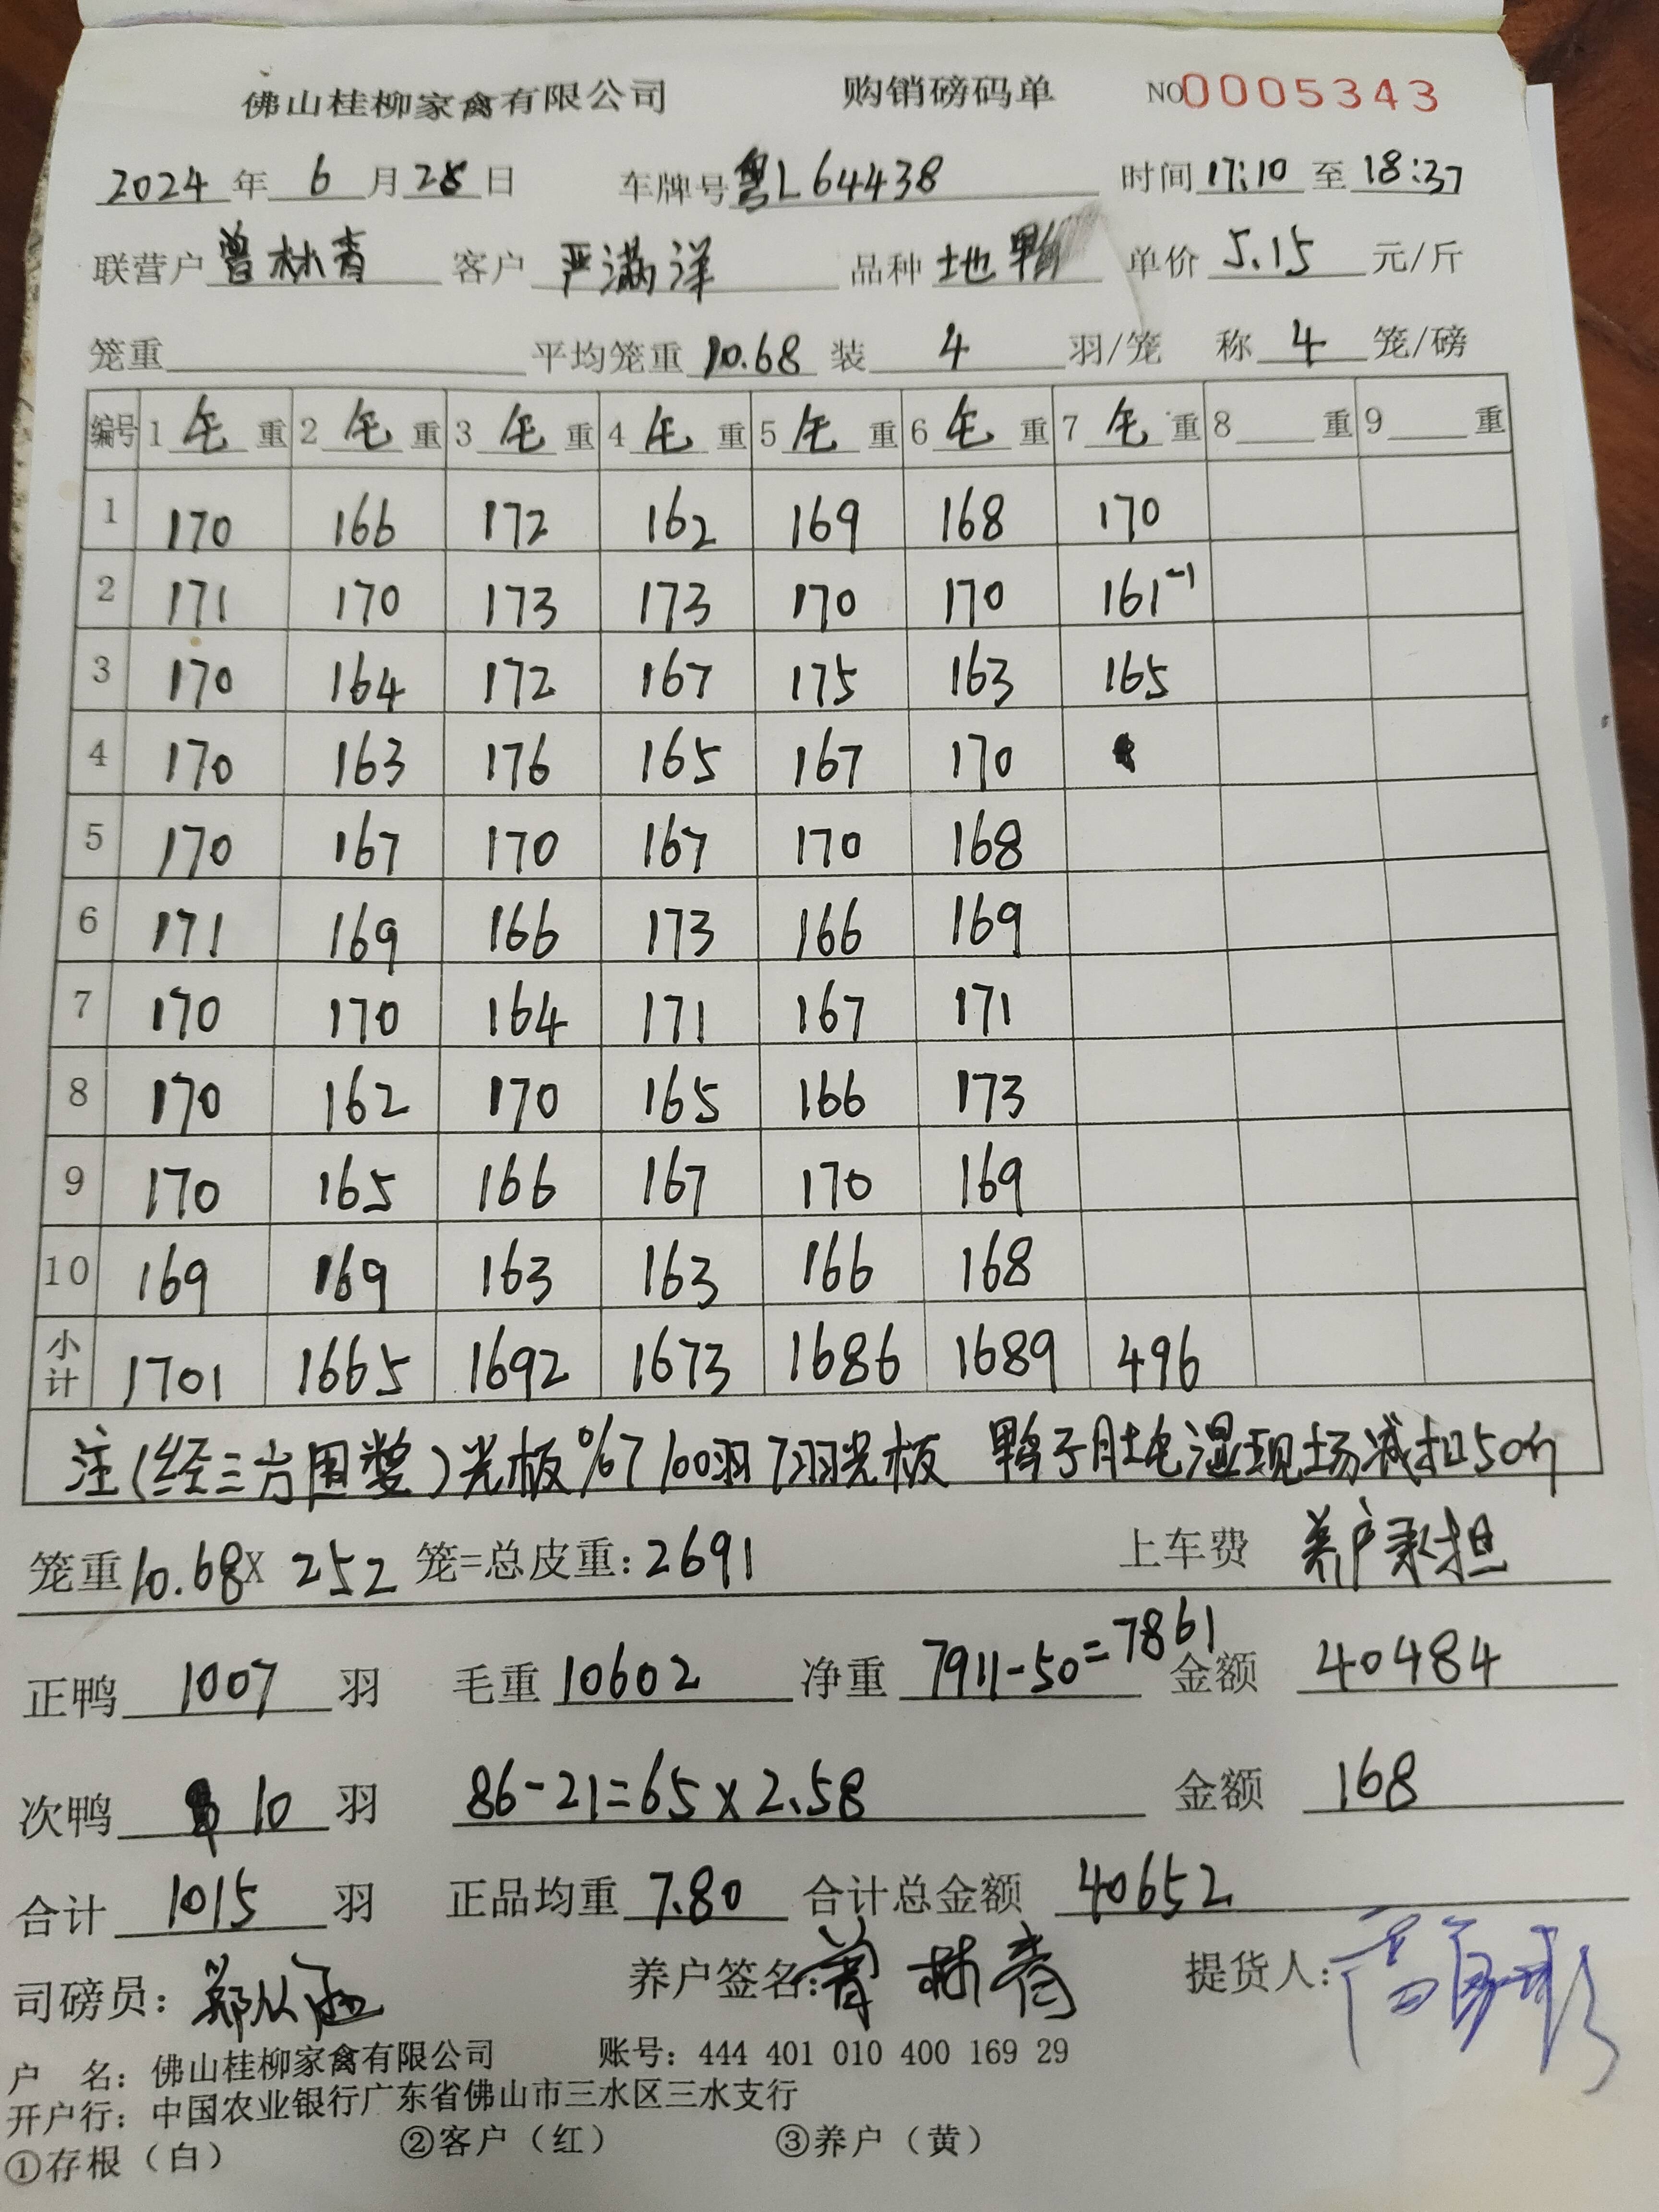 佛山桂柳家禽有限公司 购销磅码单 NO0005343
2024 年 6 月 25 日 车牌号 粤L64438 时间 17:10 至 18:37
联营户 曾林青 客户 严满洋 品种 地鸭 单价 5.15 元/斤
笼重 平均笼重 10.68 装 4 羽/笼 称 4 笼/磅
编号 1 毛 重 2 毛 重 3 毛 重 4 毛 重 5 毛 重 6 毛 重 7 毛 重 8 重 9 重
1 170 166 172 162 169 168 170
2 171 170 173 173 170 170 161-1
3 170 164 172 167 175 163 165
4 170 163 176 165 167 170
5 170 167 170 167 170 168
6 171 169 166 173 166 169
7 170 170 164 171 167 171
8 170 162 170 165 166 173
9 170 165 166 167 170 169
10 169 169 163 163 166 168
小计 1701 1665 1692 1673 1686 1689 496
注(经三方同意)光板%7 100羽7羽光板 鸭子肚毛湿现场减扣50斤
笼重 10.68 X 252 笼=总皮重: 2691 上车费 养户承担
正鸭 1007 羽 毛重 10602 净重 7911-50=7861 金额 40484
次鸭 10 羽 86-21=65×2.58 金额 168
合计 1015 羽 正品均重 7.80 合计总金额 40652
司磅员: 养户签名: 曾林青 提货人:
户 名: 佛山桂柳家禽有限公司 账号: 444 401 010 400 169 29
开户行: 中国农业银行广东省佛山市三水区三水支行
①存根（白） ②客户（红） ③养户（黄）